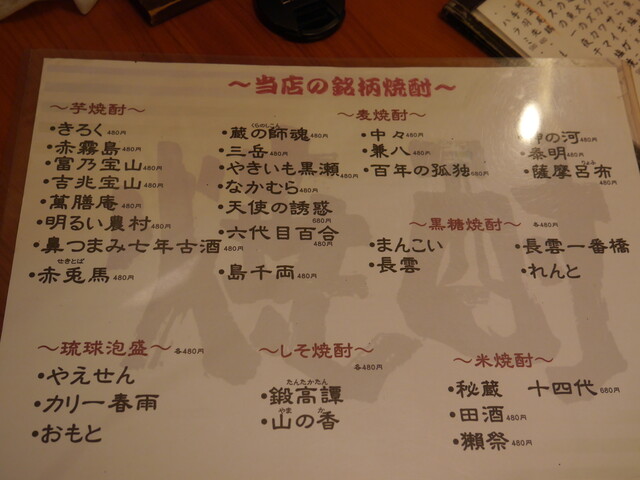 〜当店の銘柄焼酎〜
〜芋焼酎〜
・きろく 480円
・赤霧島 480円
・富乃宝山 480円
・吉兆宝山 480円
・萬膳庵 480円
・明るい農村 480円
・鼻つまみ七年古酒 480円
せきとば
・赤兎馬 480円
くらのしこん
・蔵の師魂 480円
・三岳 480円
・やきいも黒瀬 480円
・なかむら 480円
・天使の誘惑 680円
・六代目百合 480円
・島千両 480円
〜麦焼酎〜
・中々 480円
・兼八 480円
・百年の孤独 680円
の河 480円
泰明 480円
りょふ
・薩摩呂布 480円
〜黒糖焼酎〜 各480円
・まんこい
・長雲
・長雲一番橋
・れんと
〜琉球泡盛〜 各480円
・やえせん
・カリー春雨
・おもと
〜しそ焼酎〜 各480円
たんたかたん
・鍛高譚
やま か
・山の香
〜米焼酎〜
・秘蔵 十四代 680円
・田酒 480円
・獺祭 480円